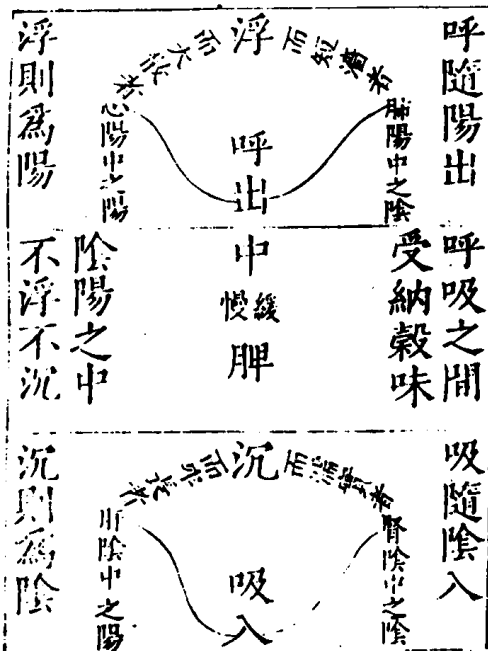 呼隨陽出
浮
而短濇者
肺陽中之陰
而大散者
心陽中之陽
呼出
浮則爲陽
呼吸之間
受納穀味
中
緩慢
脾
陰陽之中
不浮不沉
吸隨陰入
沉
而濡實者
腎陰中之陰
而牢長者
肝陰中之陽
吸入
沉則爲陰